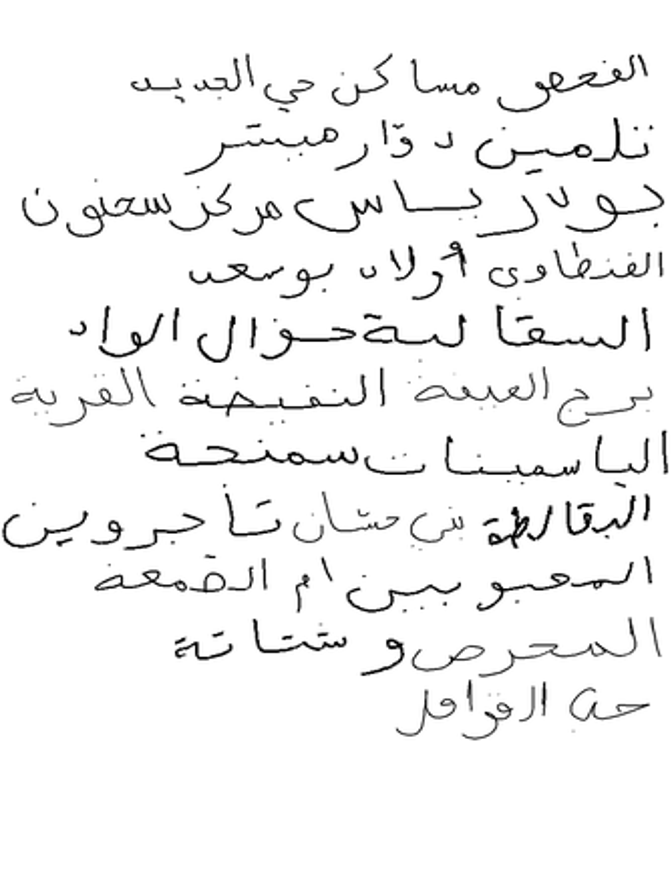 الفحص مساكن حي الجديد
تلمين دوّار مبشر
بولارباس مركز سحنون
الفنطاوى أولاد بوسعد
السقالبة حوال الواد
برج العيفة النفيضة القرية
الياسمينات سمنجة
البقالطة بني حسّان تاجروين
المعبوبين ام الصّمعة
المحرص وشتاتة
حي القوافل